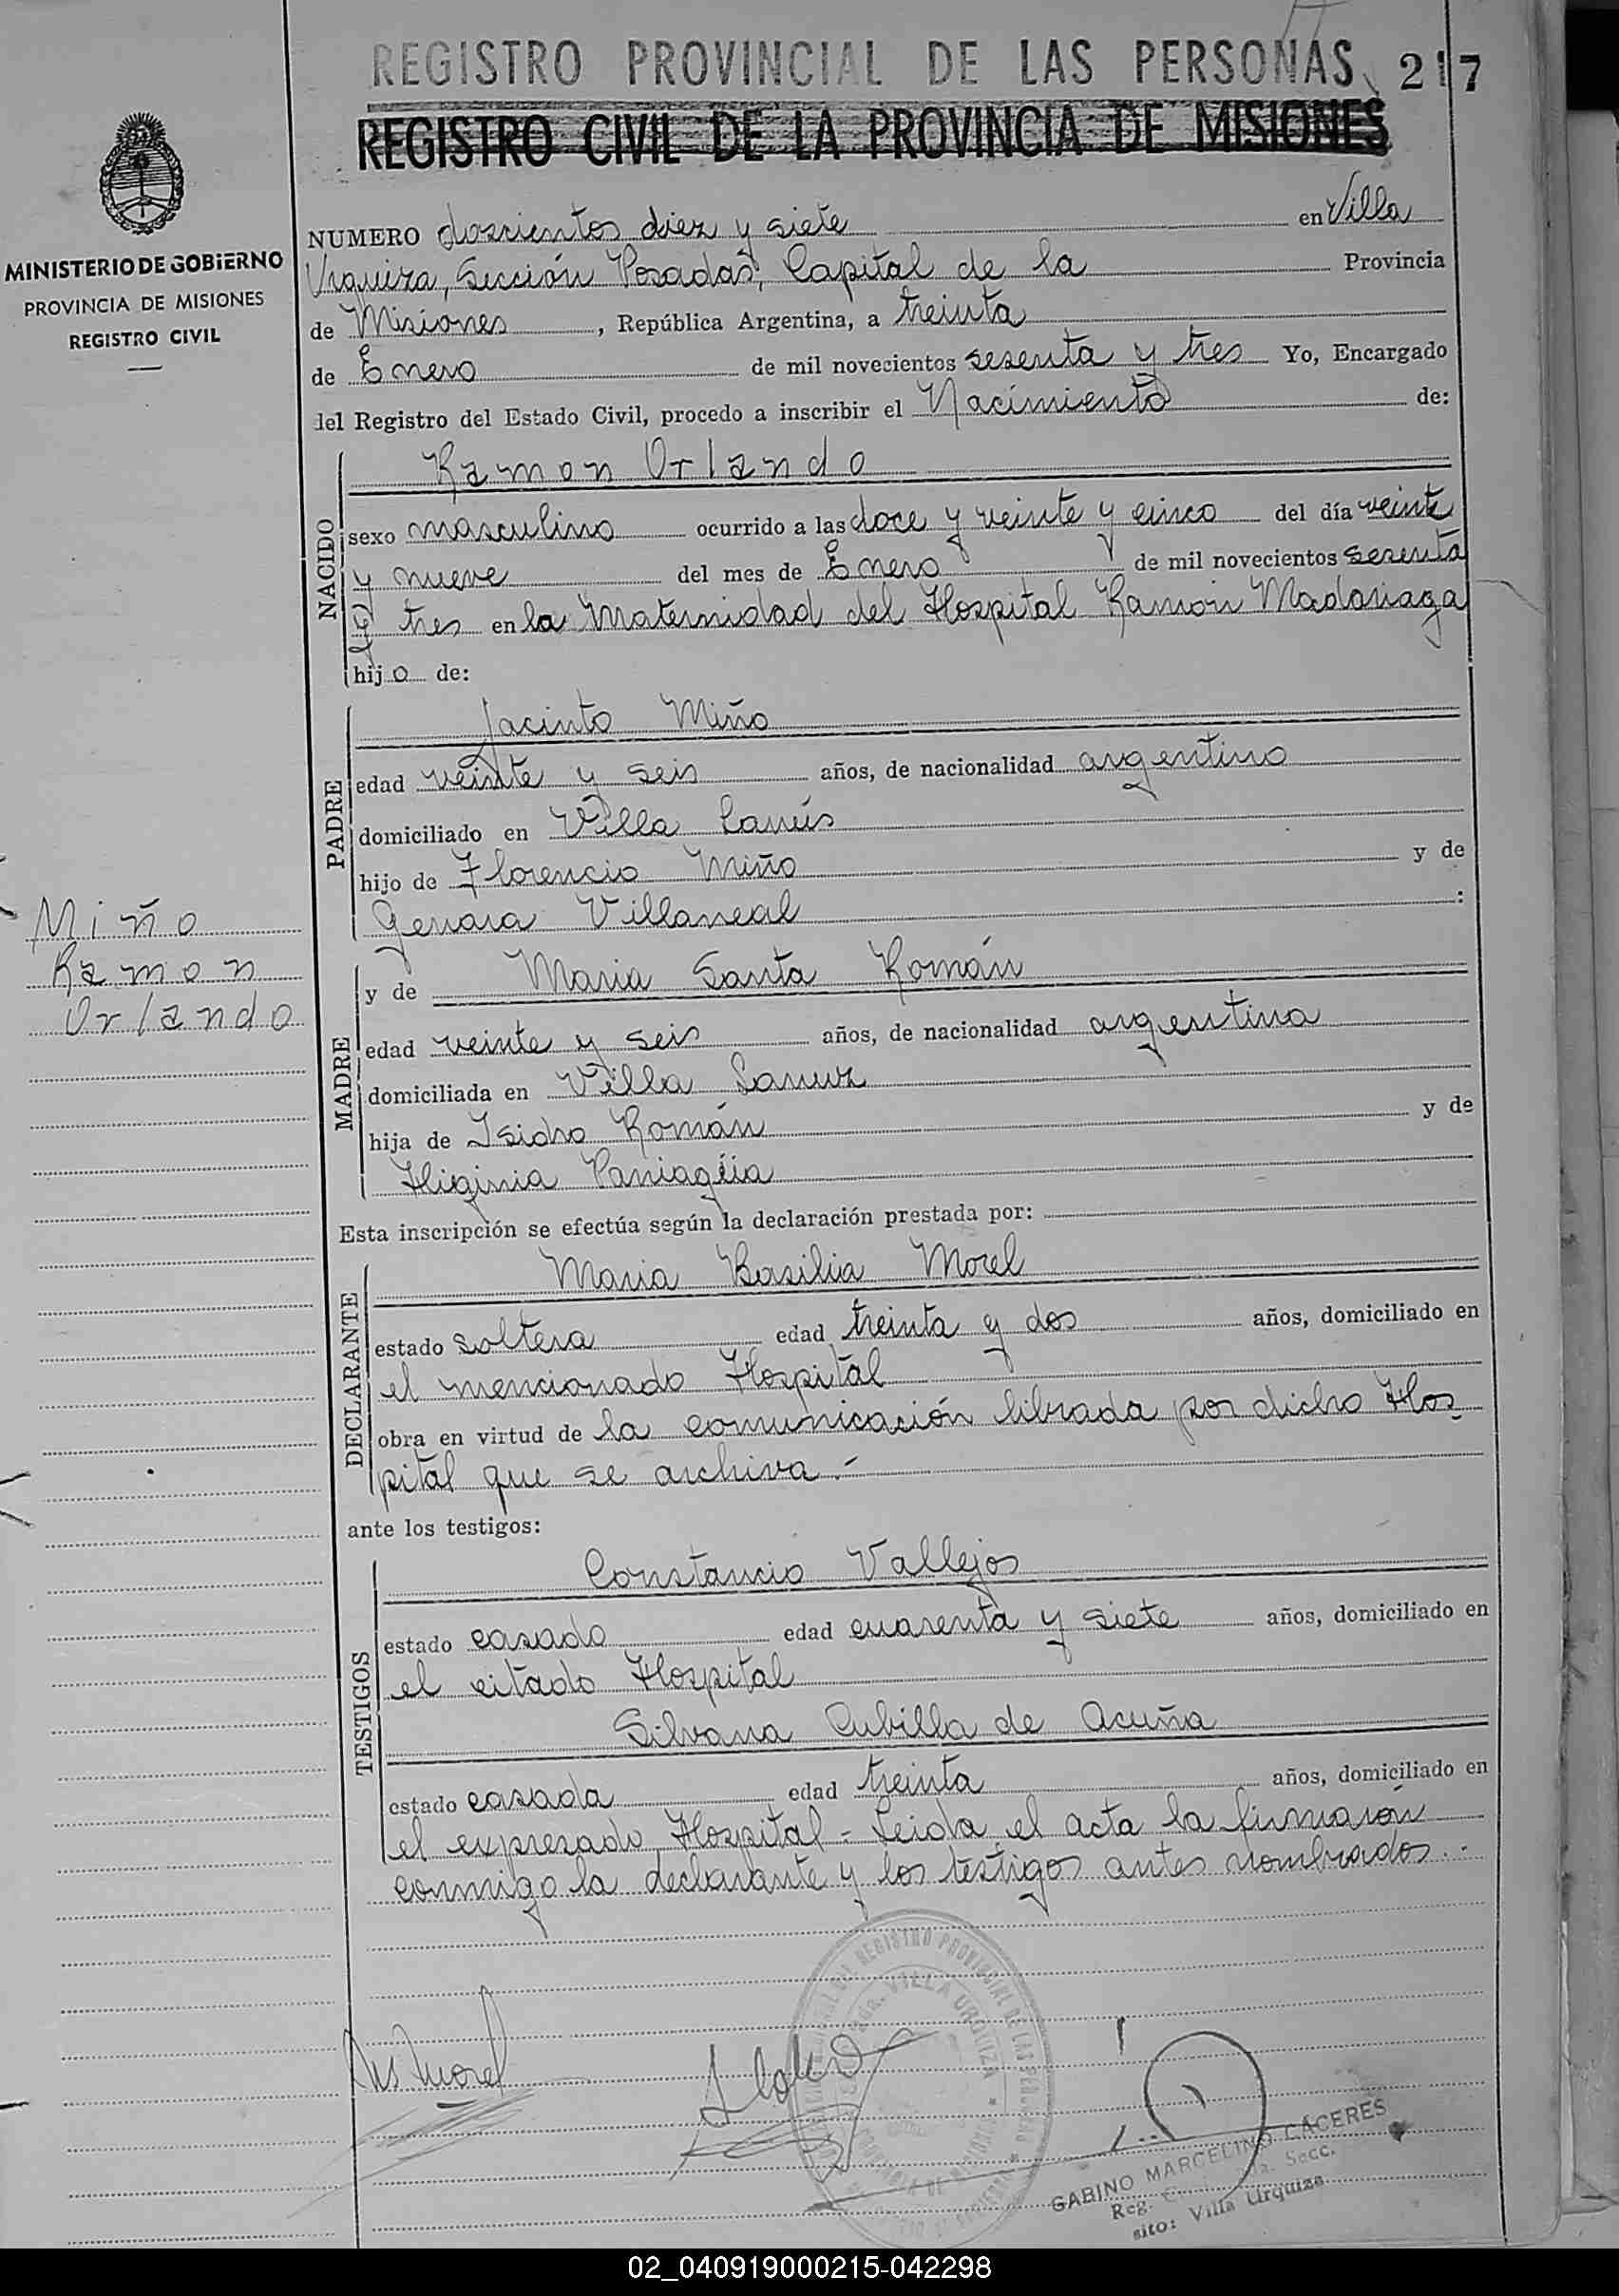 REGISTRO PROVINCIAL DE LAS PERSONAS 217
REGISTRO CIVIL DE LA PROVINCIA DE MISIONES
MINISTERIO DE GOBIERNO
PROVINCIA DE MISIONES
REGISTRO CIVIL
NUMERO doscientos diez y siete en Villa
Urquiza, Sección Posadas, Capital de la Provincia
de Misiones, República Argentina, a treinta
de Enero de mil novecientos sesenta y tres Yo, Encargado
del Registro del Estado Civil, procedo a inscribir el Nacimiento de:
NACIDO
Ramon Orlando
sexo masculino ocurrido a las doce y veinte y cinco del día veinte
y nueve del mes de Enero de mil novecientos sesenta
y tres en la Maternidad del Hospital Ramon Madariaga
hijo de:
PADRE
Jacinto Miño
edad veinte y seis años, de nacionalidad argentino
domiciliado en Villa Lanús
hijo de Florencio Miño y de
Genara Villareal :
Miño
Ramon
Orlando
MADRE
y de Maria Santa Román
edad veinte y seis años, de nacionalidad argentina
domiciliada en Villa Lanuz
hija de Isidro Román y de
Higinia Paniagüa
Esta inscripción se efectúa según la declaración prestada por:
DECLARANTE
Maria Basilia Morel
estado soltera edad treinta y dos años, domiciliado en
el mencionado Hospital
obra en virtud de la comunicación librada por dicho Hos-
pital que se archiva.-
ante los testigos:
TESTIGOS
Constancio Vallejos
estado casado edad cuarenta y siete años, domiciliado en
el citado Hospital
Silvana Cubilla de Acuña
estado casada edad treinta años, domiciliado en
el expresado Hospital - Leida el acta la firmarón
conmigo la declarante y los testigos antes nombrados.-
Morel
VILLA URQUIZA
GABINO MARCELINO CACERES
Reg. Secc.
sito: Villa Urquiza
02_040919000215-042298